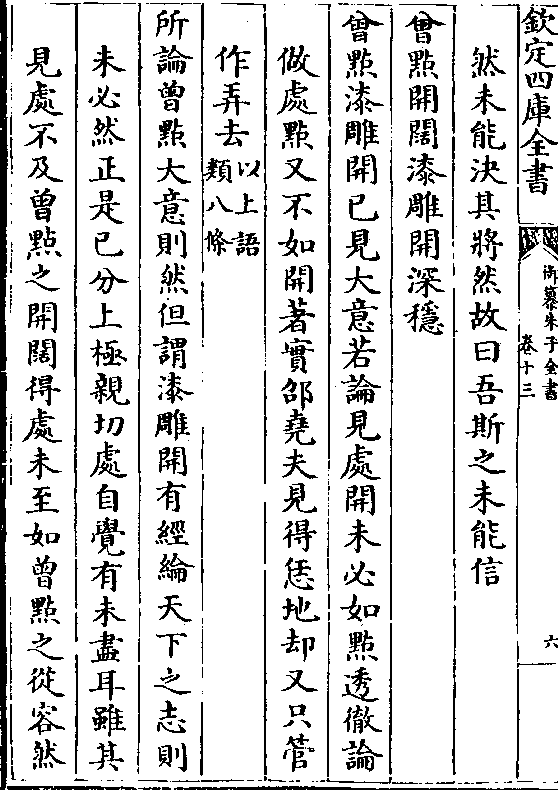 欽定四庫全書
御纂朱子全書
卷十三
六
然未能決其將然故曰吾斯之未能信
曾點開闊漆雕開深穩
曾點漆雕開已見大意若論見處開未必如點透徹論
做處點又不如開著實邵堯夫見得恁地却又只管
作弄去以上語類八條
所論曾點大意則然但謂漆雕開有經綸天下之志則
未必然正是己分上極親切處自覺有未盡耳雖其
見處不及曾點之開闊得處未至如曾點之從容然